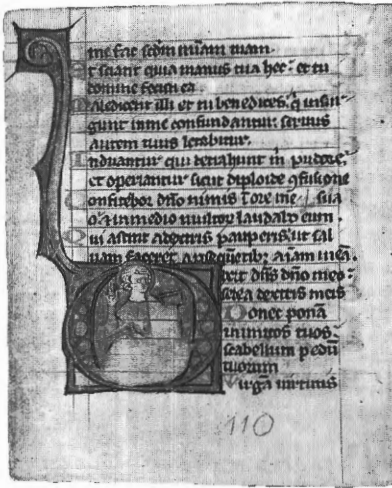 me fac scdm miam tuam.
Et sciant quia manus tua hec: et tu
domine fecisti ea.
Maledicent illi et tu benedices: q insur
gunt in me confundantur: seruus
autem tuus letabitur.
Induantur qui detrahunt m pudore:
et operiantur sicut diploide 9fusione
Confitebor dno nimis
in medio multor laudabo eum.
Qui astitit a dextris pauperis: ut sal
uam faceret a animam meam.
Dixit dns dno meo:
sede a dextris meis
Donec ponam
inimicos tuos:
scabellum pedum
tuorum
Virgam uirtutis
110